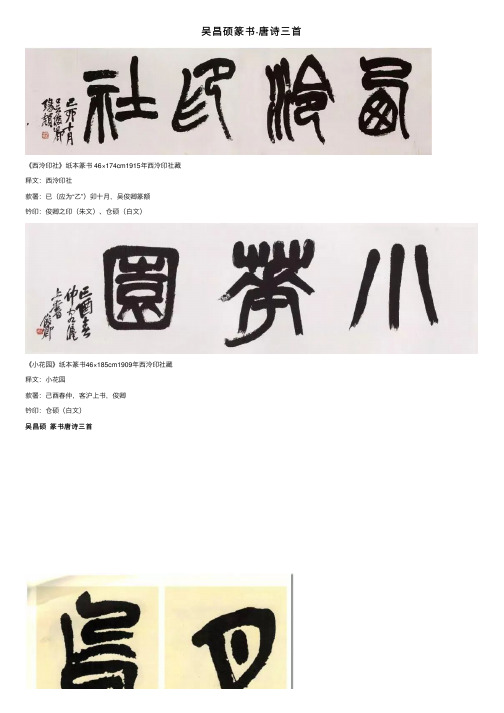 吴昌硕篆书-唐诗三首
西泠印社
己卯十月
吳俊卿
篆額
《西泠印社》纸本篆书 46×174cm1915年西泠印社藏
释文：西泠印社
款署：已（应为“乙”）卯十月，吴俊卿篆额
钤印：俊卿之印（朱文）、仓硕（白文）
小華園
己酉春
仲客滬
上書 俊卿
《小花园》纸本篆书46×185cm1909年西泠印社藏
释文：小花园
款署：己酉春仲，客沪上书，俊卿
钤印：仓硕（白文）
吴昌硕 篆书唐诗三首